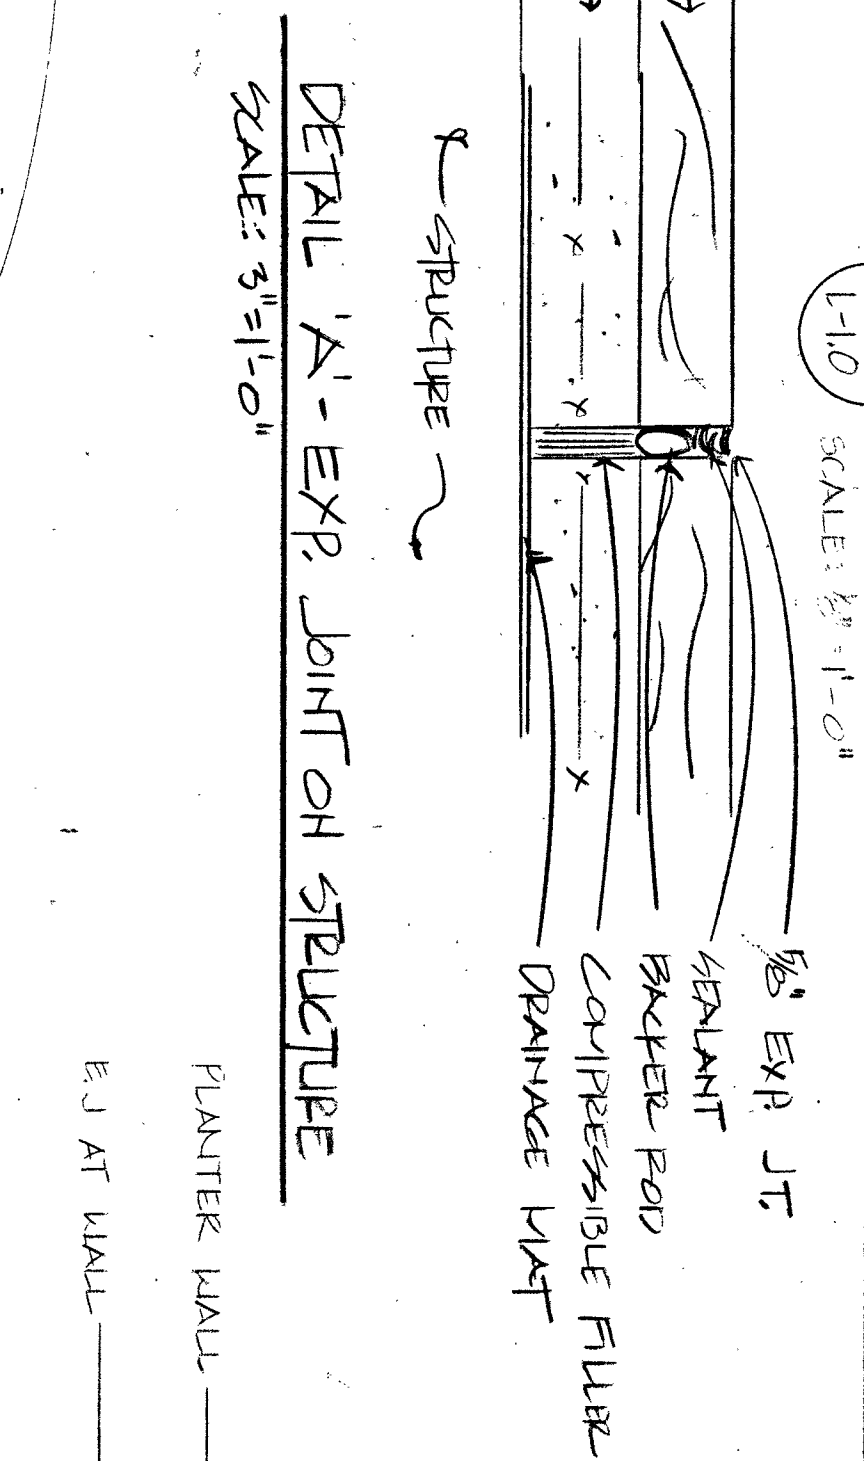 L-1.0
SCALE: ½" = 1'-0"
5/8" EXP. JT.
SEALANT
BACKER ROD
COMPRESSIBLE FILLER
DRAINAGE MAT
STRUCTURE
DETAIL 'A' - EXP. JOINT ON STRUCTURE
SCALE: 3" = 1'-0"
PLANTER WALL
E.J AT WALL